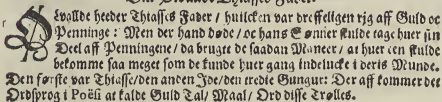 Evallde heeder Thiasses Fader / huilcken var dreffeligen rjg aff Guld oc
Penninge: Men der hand døde / oc hans Sønner skulde tage huer sin
Deel aff Penningene / da brugte de saadan Maneer / at huer een skulde
bekomme saa meget som de kunde huer gang indelucke i deris Munde.
Den første var Thiasse / den anden Joe / den tredie Gungur: Der aff kommer det
Ordsprog i Poësi at kalde Guld Tal / Maal / Ord disse Trolles.